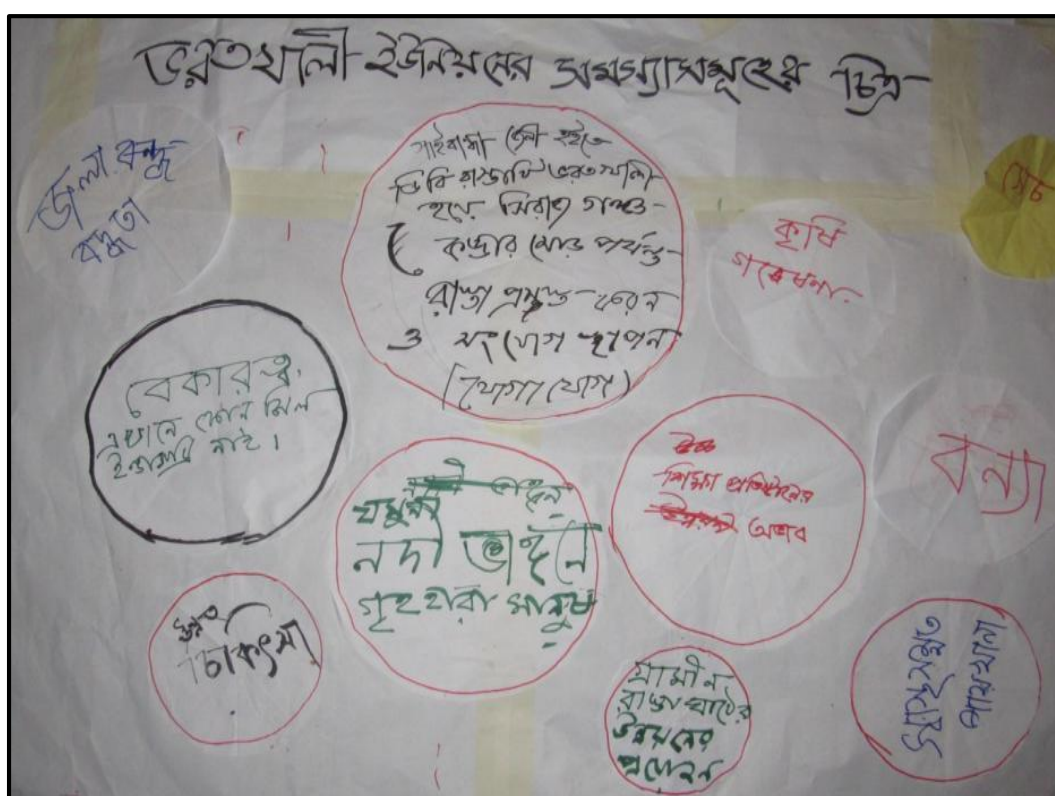 ভরতখালী ইউনিয়নের সমস্যাসমূহের চিত্র
জলাবদ্ধ
বদ্ধতা
গাইবান্ধা জেলা হইতে
ভরতখালী
হয়ে সিরাজ গঞ্জ
কড্ডার মোড় পর্যন্ত
রাস্তা প্রসস্ত করন
ও সংযোগ স্থাপন
(যোগাযোগ)
কৃষি
গবেষনা
সেচ
বেকারত্ব
এখানে কোন মিল
ইন্ডাসট্রি নাই।
যমুনা
নদী ভাঙ্গনে
গৃহহারা মানুষ
উচ্চ
শিক্ষা প্রতিষ্ঠানের
অভাব
বন্যা
উন্নত
চিকিৎসা
গ্রামীন
রাস্তাঘাটের
উন্নয়নের
প্রয়োজন
স্বাস্থ্য সম্মত
পায়খানা